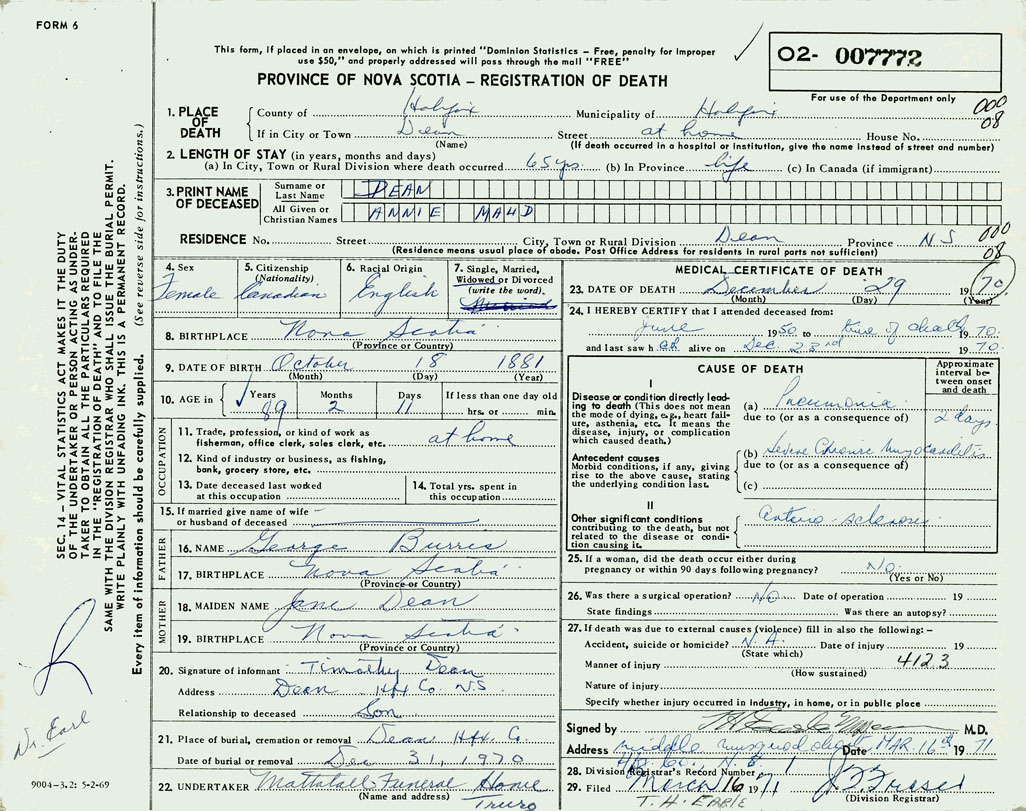 FORM 6
This form, if placed in an envelope, on which is printed "Dominion Statistics – Free, penalty for improper
use $50," and properly addressed will pass through the mail "FREE"
PROVINCE OF NOVA SCOTIA – REGISTRATION OF DEATH
02- 007772
For use of the Department only
000
08
1. PLACE OF DEATH
County of Halifax Municipality of Halifax
If in City or Town Dean Street at home House No.
(Name) (If death occurred in a hospital or institution, give the name instead of street and number)
2. LENGTH OF STAY (in years, months and days)
(a) In City, Town or Rural Division where death occurred 65 yrs. (b) In Province life (c) In Canada (if immigrant)
3. PRINT NAME OF DECEASED
Surname or Last Name DEAN
All Given or Christian Names ANNIE MAUD
RESIDENCE No. Street City, Town or Rural Division Dean Province N S
000
08
(Residence means usual place of abode. Post Office Address for residents in rural parts not sufficient)
4. Sex
Female
5. Citizenship
(Nationality)
Canadian
6. Racial Origin
English
7. Single, Married,
Widowed or Divorced
(write the word).
8. BIRTHPLACE Nova Scotia
(Province or Country)
9. DATE OF BIRTH October 18 1881
(Month) (Day) (Year)
10. AGE in Years 89 Months 2 Days 11 If less than one day old
hrs. or min.
OCCUPATION
11. Trade, profession, or kind of work as
fisherman, office clerk, sales clerk, etc. at home
12. Kind of industry or business, as fishing,
bank, grocery store, etc.
13. Date deceased last worked
at this occupation
14. Total yrs. spent in
this occupation
15. If married give name of wife
or husband of deceased
FATHER
16. NAME George Burris
17. BIRTHPLACE Nova Scotia
(Province or Country)
MOTHER
18. MAIDEN NAME Jane Dean
19. BIRTHPLACE Nova Scotia
(Province or Country)
20. Signature of informant Timothy Dean
Address Dean Hfx Co. N.S
Relationship to deceased Son
21. Place of burial, cremation or removal Dean Hfx. Co.
Date of burial or removal Dec 31, 1970
22. UNDERTAKER Mattatall Funeral Home
(Name and address) Truro
MEDICAL CERTIFICATE OF DEATH
23. DATE OF DEATH December 29 1970
(Month) (Day) (Year)
24. I HEREBY CERTIFY that I attended deceased from:
June 1950 to time of death 1970.
and last saw her alive on Dec 23rd 1970.
CAUSE OF DEATH
Approximate
interval be-
tween onset
and death
I
Disease or condition directly lead-
ing to death (This does not mean
the mode of dying, e.g., heart fail-
ure, asthenia, etc. It means the
disease, injury, or complication
which caused death.)
(a) Pneumonia 2 days.
due to (or as a consequence of)
Antecedent causes
Morbid conditions, if any, giving
rise to the above cause, stating
the underlying condition last.
(b) Severe Chronic Myocarditis
due to (or as a consequence of)
(c)
II
Other significant conditions
contributing to the death, but not
related to the disease or condi-
tion causing it.
Arterio-sclerosis
25. If a woman, did the death occur either during
pregnancy or within 90 days following pregnancy? No.
(Yes or No)
26. Was there a surgical operation? NO Date of operation 19
State findings Was there an autopsy?
27. If death was due to external causes (violence) fill in also the following: –
Accident, suicide or homicide? N.A. Date of injury 19
(State which)
Manner of injury 4123
(How sustained)
Nature of injury
Specify whether injury occurred in Industry, in home, or in public place
Signed by M.D.
Address Middle Musquodoboit Date MAR. 16th 1971
Hfx. Co. N.S.
28. Division Registrar's Record Number 1
29. Filed March 16 1971 Fraser
Division Registrar
T. H. EARLE
SEC. 14 – VITAL STATISTICS ACT MAKES IT THE DUTY
OF THE UNDERTAKER OR PERSON ACTING AS UNDER-
TAKER TO OBTAIN ALL THE PARTICULARS REQUIRED
IN THE "REGISTRATION OF DEATH" AND TO FILE THE
SAME WITH THE DIVISION REGISTRAR WHO SHALL ISSUE THE BURIAL PERMIT.
WRITE PLAINLY WITH UNFADING INK. THIS IS A PERMANENT RECORD.
Every item of information should be carefully supplied. (See reverse side for instructions.)
Dr. Earl
9004-3.2: 5-2-69